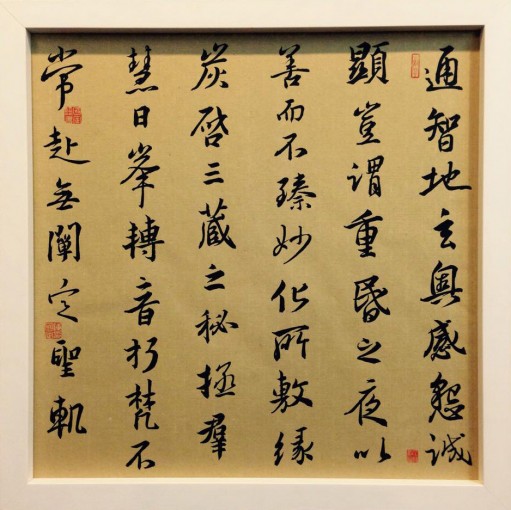 通智地玄奧感懇誠
顯豈謂重昬之夜以
善而不臻妙化所敷緣
炭啓三藏之秘拯羣
慧日峯轉音於梵不
常赴無闡定聖軌